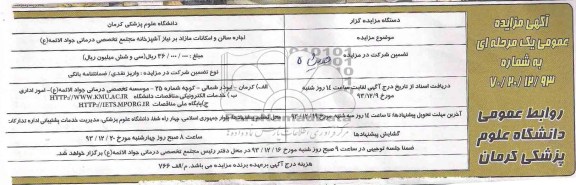 آگهی مزایده
عمومی یک مرحله ای
به شماره
۷۰/۲۰/۱۲/۹۳
روابط عمومی
دانشگاه علوم
پزشکی کرمان
دستگاه مزایده گزار
دانشگاه علوم پزشکی کرمان
موضوع مزایده
اجاره سالن و امکانات مازاد بر نیاز آشپزخانه مجتمع تخصصی درمانی جواد الائمه(ع)
تضمین شرکت در مزایده
مبلغ : ۳۶/۰۰۰/۰۰۰ ریال(سی و شش میلیون ریال)
نوع تضمین شرکت در مزایده : واریز نقدی / ضمانتنامه بانکی
دریافت اسناد از تاریخ درج آگهی لغایت ساعت ۱۴ روز شنبه
مورخ ۹۳/۱۲/۹
الف) کرمان - ابوذر شمالی - کوچه شماره ۲۵ - موسسه تخصصی درمانی جواد الائمه(ع)- امور اداری
ب ) خدمات الکترونیکی مناقصات دانشگاه HTTP://WWW.KMU.AC.IR
ج)پایگاه ملی مناقصات HTTP://IETS.MPORG.IR
آخرین مهلت تحویل پیشنهادها تا ساعت ۱۴ روز
چهار راه خط دانشگاه علوم پزشکی، مدیریت خدمات پشتیبانی اداره تدارکات
گشایش پیشنهادها
ساعت ۸ صبح روز چهارشنبه مورخ ۹۳/۱۲/۲۰
ضمنا جلسه توجیهی در ساعت ۹ صبح روز شنبه مورخ ۹۳/۱۲/۱۶ در محل دفتر رئیس مجتمع تخصصی درمانی جواد الائمه(ع) برگزار خواهد شد.
هزینه درج آگهی برعهده برنده مزایده می باشد. م/الف ۷۶۶